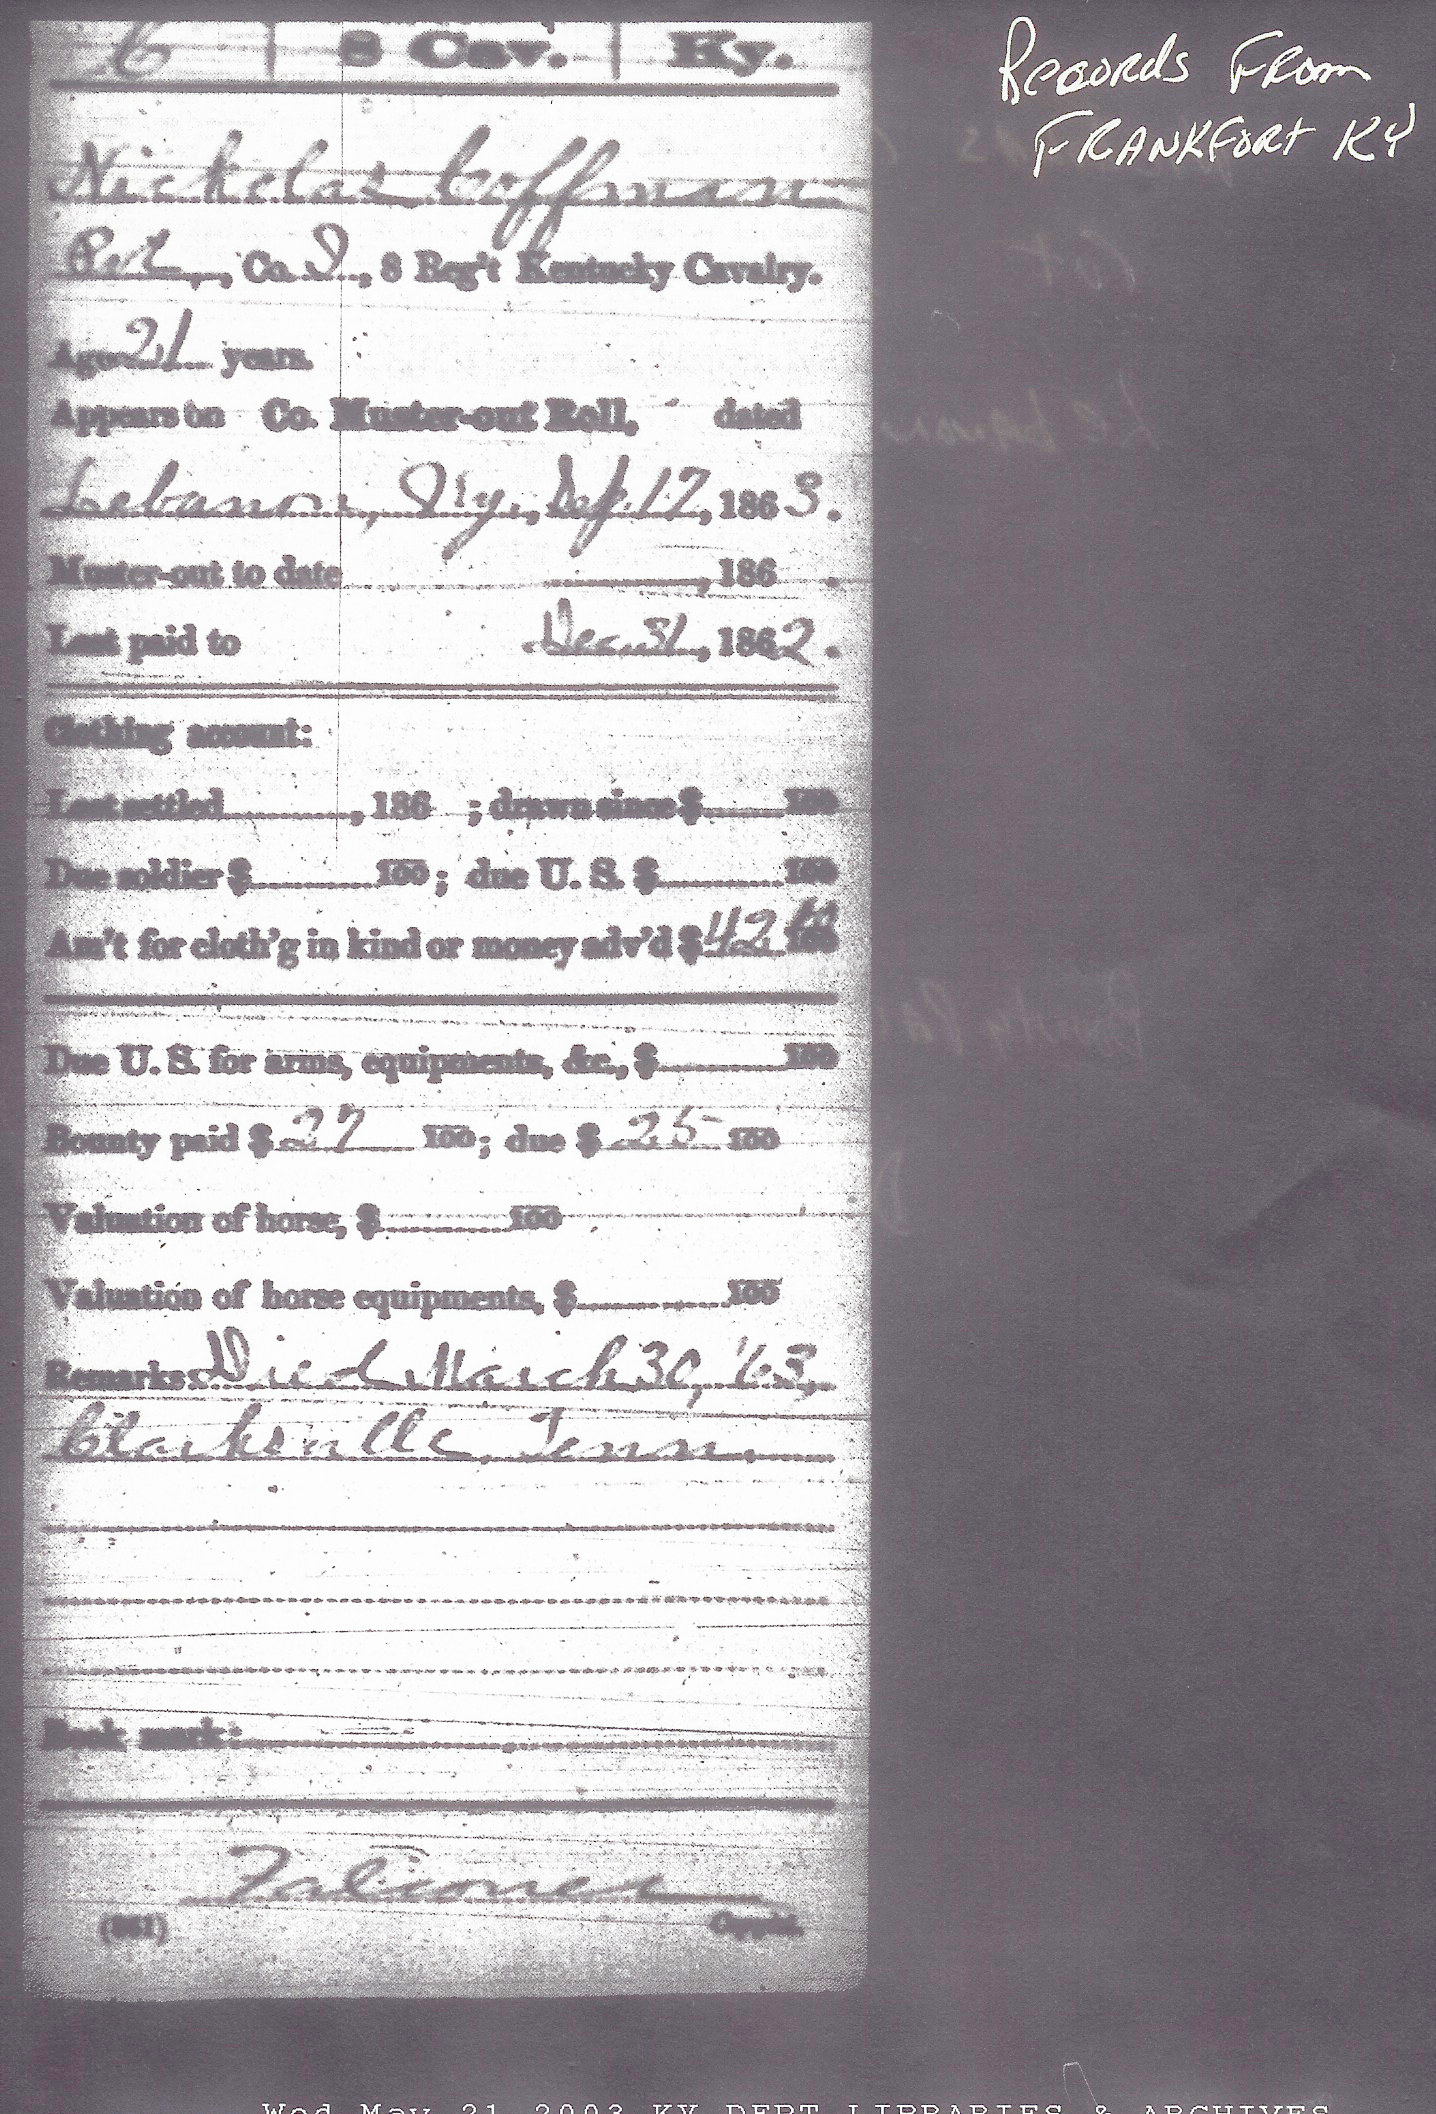 C | 8 Cav. | Ky.
Records From
Frankfort KY
Nickolas Coffman
Pvt, Co. I, 8 Reg't Kentucky Cavalry.
Age 21 years.
Appears on Co. Muster-out Roll, dated
Lebanon, Ky., Sep. 17, 1863.
Muster-out to date , 186 .
Last paid to Dec. 31, 1862.
Clothing account:
Last settled , 186 ; drawn since $ 100
Due soldier $ 100; due U. S. $ 100
Am't for cloth'g in kind or money adv'd $ 42 100
Due U. S. for arms, equipments, &c., $ 100
Bounty paid $ 27 100; due $ 25 100
Valuation of horse, $ 100
Valuation of horse equipments, $ 100
Remarks: Died March 30, '63,
Clarksville, Tenn.
Book mark:
Falconer
(861) Copyist.
Wed May 21 2003 KY DEPT LIBRARIES & ARCHIVES